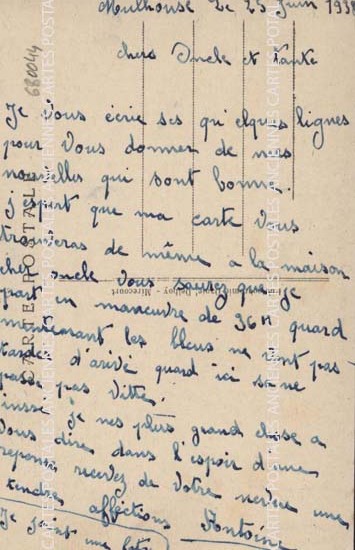 Mulhouse Le 25 Juin 193
chers Oncle et Tante
Je vous écrie ses qu'elques lignes
pour vous donner de mes
nouvelles qui sont bonne.
j'espert que ma carte vous
trouveras de même a la maison
cher oncle vous saurez que je
part en maneuvre de 36 H quard
maintenant les bleus ne vont pas
tarder d'arivé quard ici sa ne
passe pas vitte.
je nes plus grand chose a
vous dire dans l'espoir d'une
repont recevez de votre neveue une
tendre affections Antoine
Je
CARTE POSTALE
680044
Mirecourt
CARTES POSTALES ANCIENNES